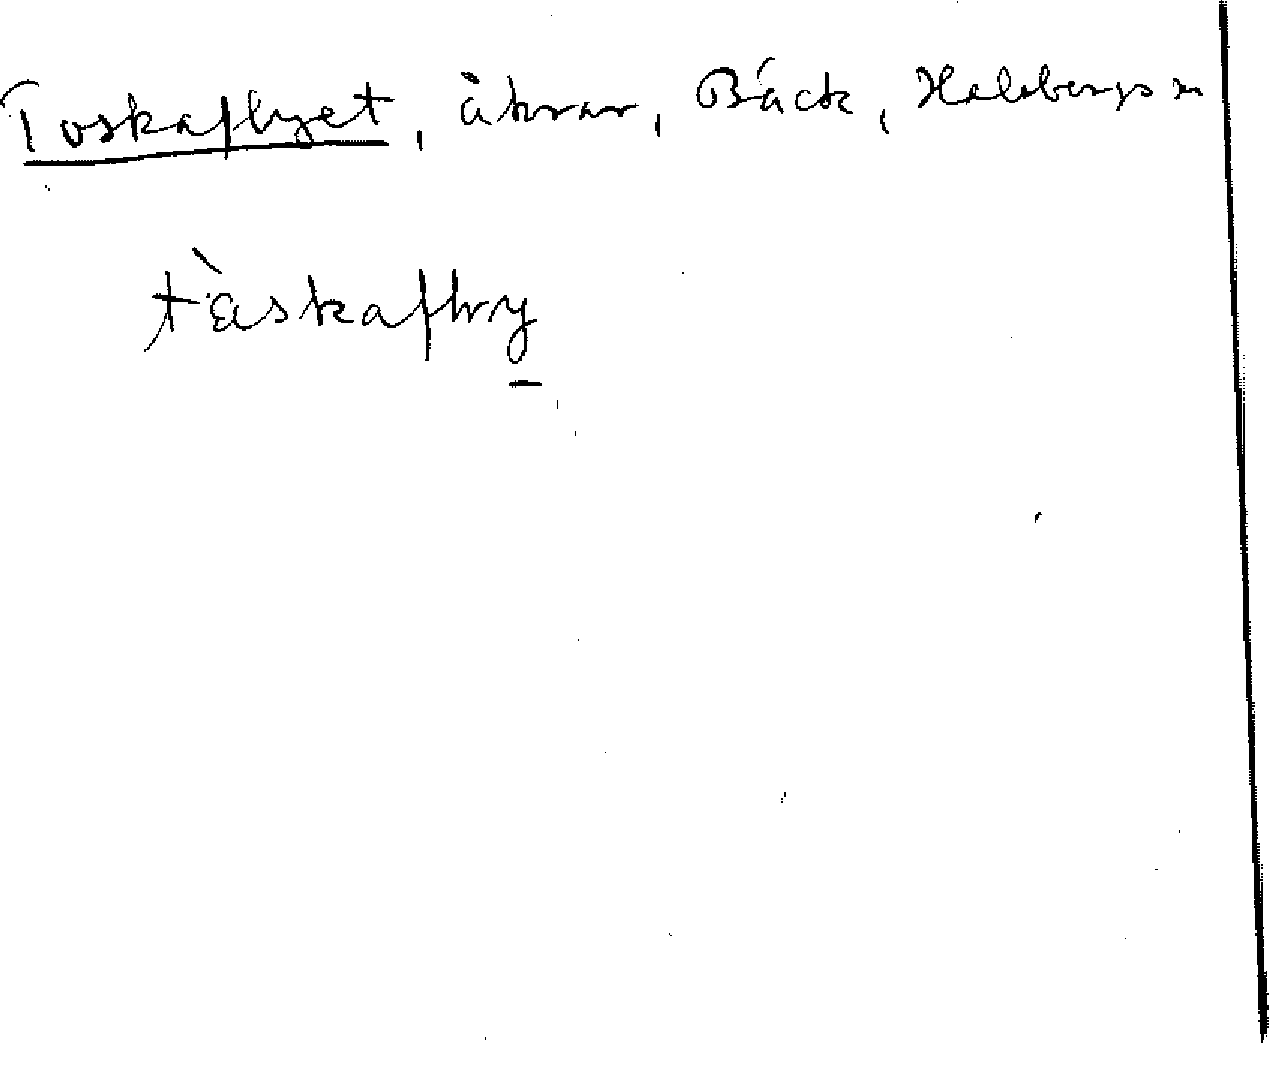 Toskaflyet, åkrar, Bäck, Halsbergs sn
tàskafly